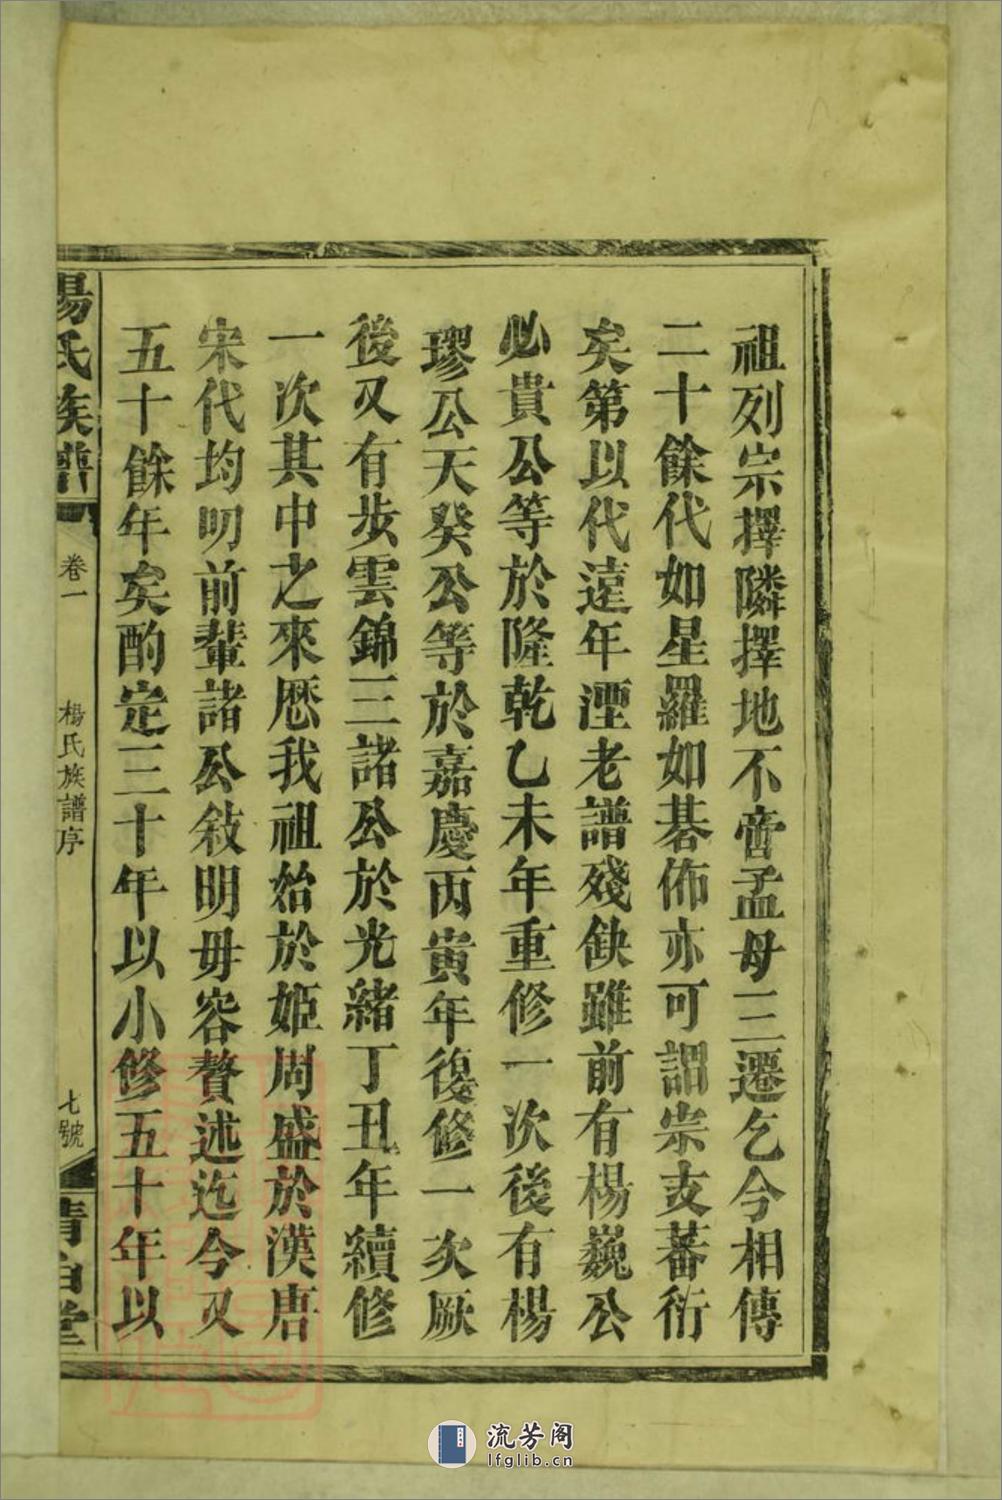 祖列宗擇隣擇地不啻孟母三遷乞今相傳
二十餘代如星羅如碁佈亦可謂宗支蕃衍
矣第以代遠年湮老譜殘缺雖前有楊巍公
必貴公等於隆乾乙未年重修一次後有楊
璆公天癸公等於嘉慶丙寅年復修一次厥
後又有步雲錦三諸公於光緒丁丑年續修
一次其中之來歷我祖始於姬周盛於漢唐
宋代均叨前輩諸公敍明毋容贅述迄今又
五十餘年矣酌定三十年以小修五十年以
楊氏族譜
卷一
楊氏族譜序
七號
清白堂
流芳阁
lfglib.cn